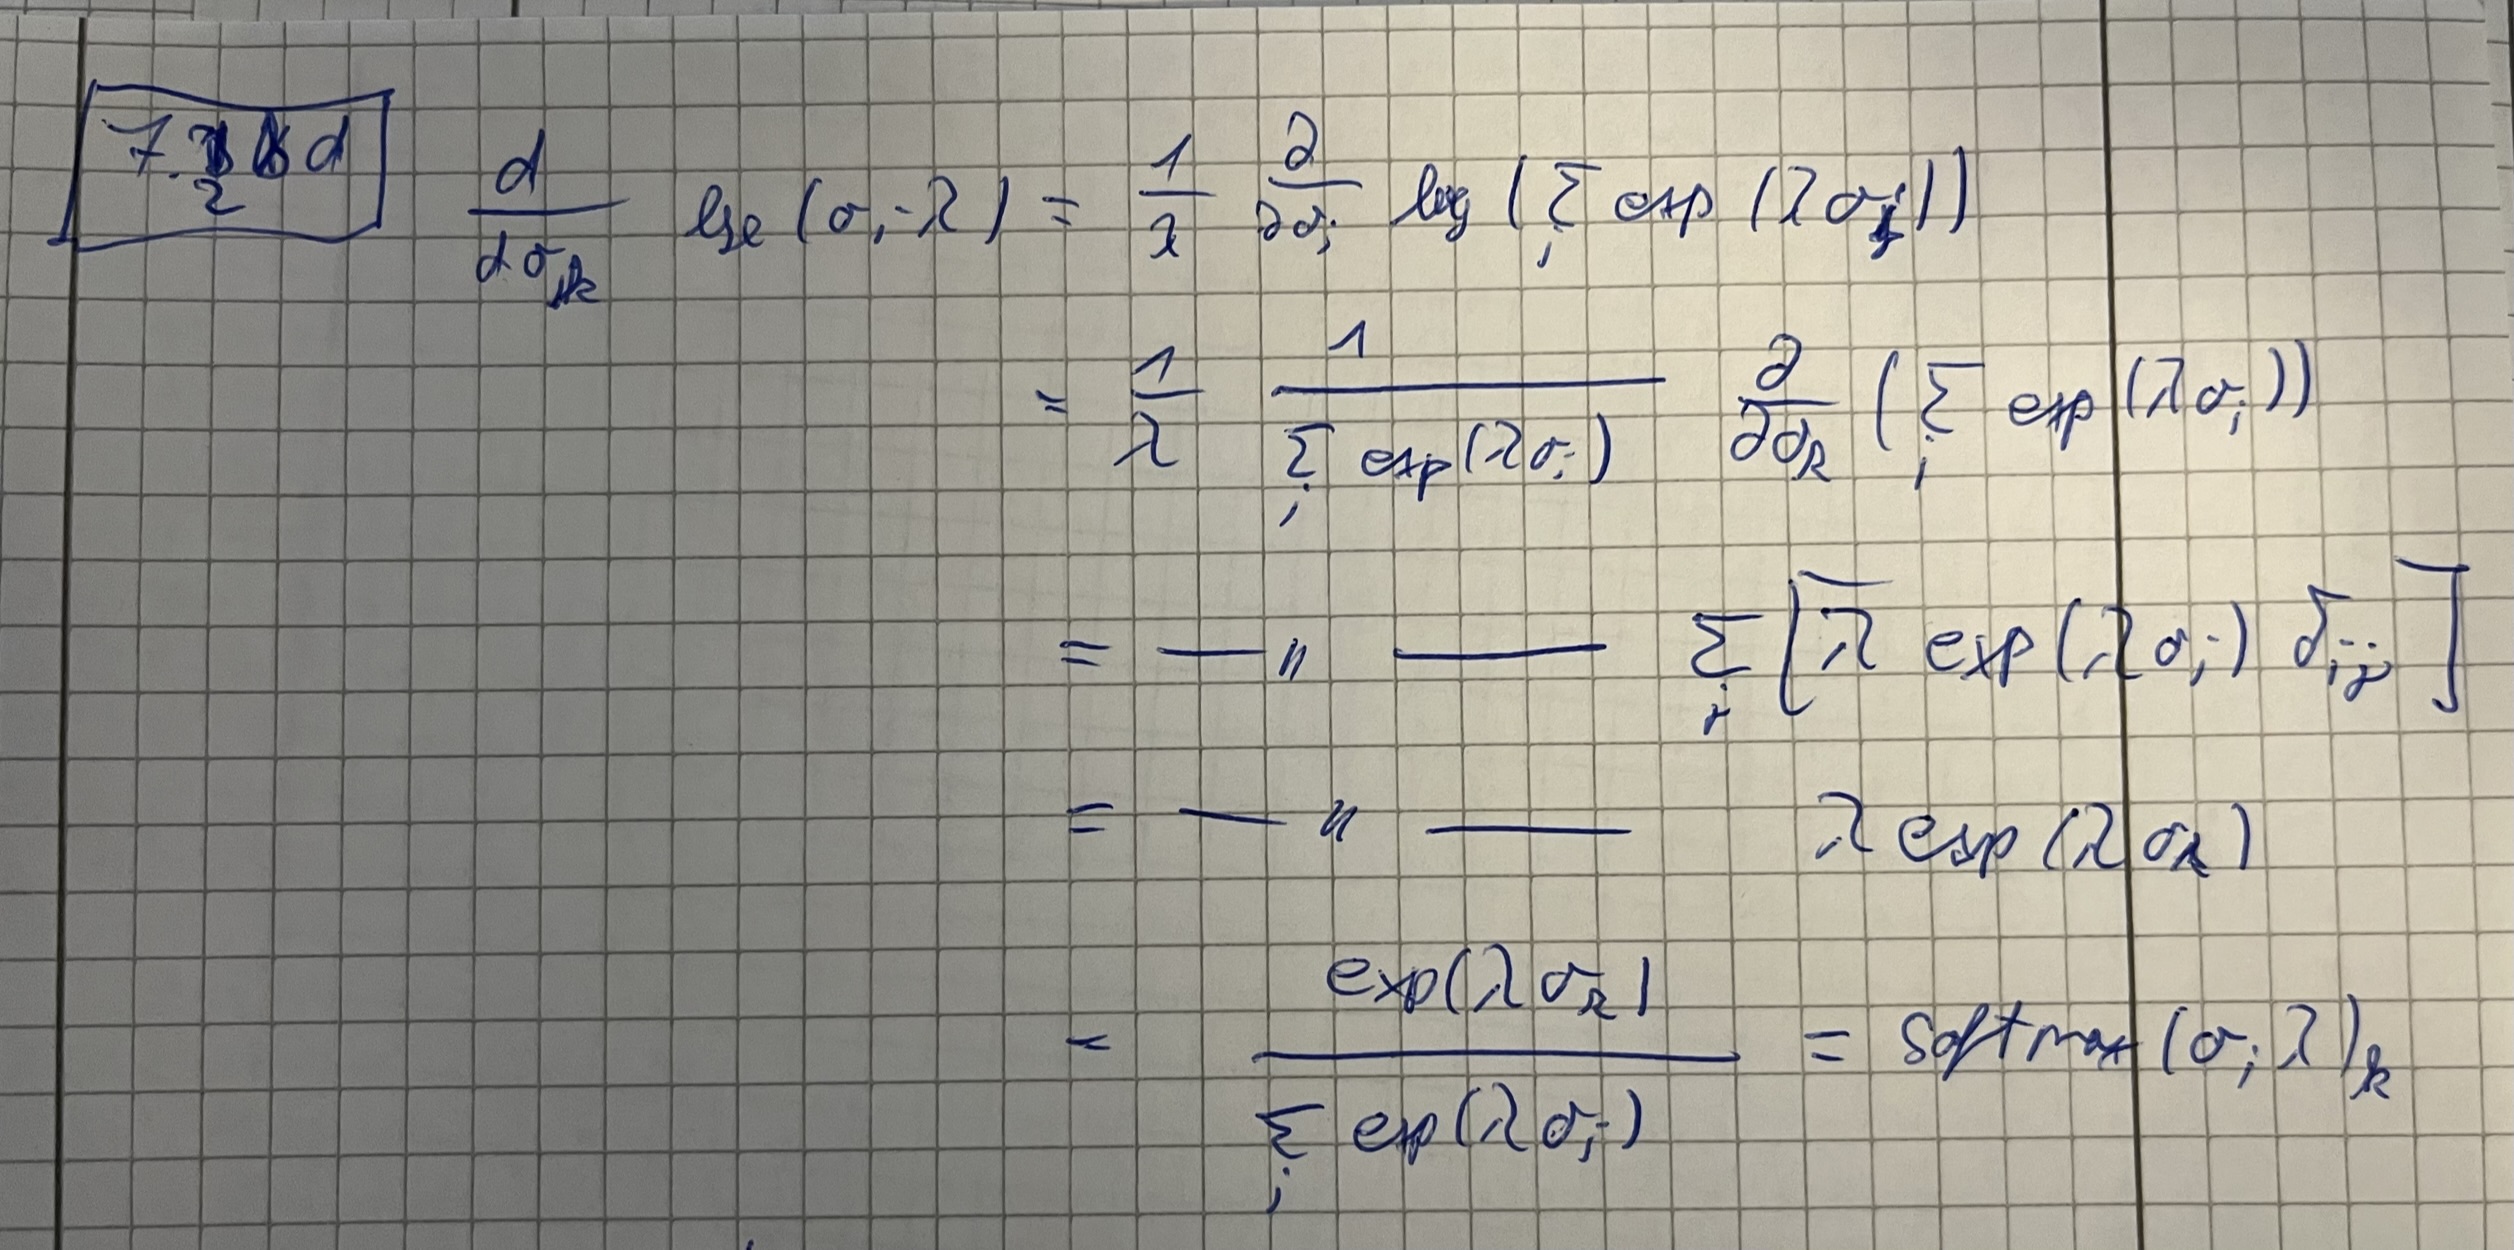 7.2 d d/dσ_k lse(σ; λ) = 1/λ ∂/∂σ_j log(Σ_j exp(λσ_j))
= 1/λ 1/(Σ_j exp(λσ_j)) ∂/∂σ_k (Σ_j exp(λσ_j))
= —— " —— Σ_j [λ exp(λσ_j) δ_ij]
= —— " —— λ exp(λσ_k)
= exp(λσ_k)/(Σ_j exp(λσ_j)) = softmax(σ; λ)_k